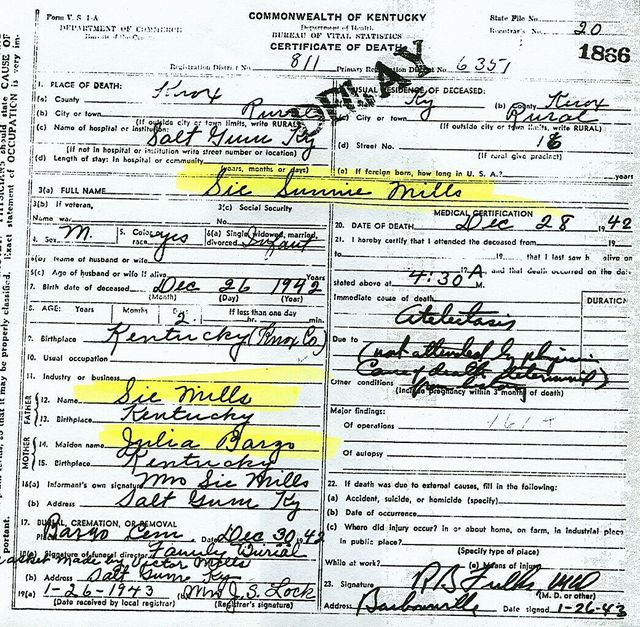 Form V. S. 1-A
COMMONWEALTH OF KENTUCKY
State File No.
DEPARTMENT OF COMMERCE
Department of Health
Registrar's No. 20
Bureau of the
BUREAU OF VITAL STATISTICS
CERTIFICATE OF DEATH
1866
Registration District No. 811 Primary Registration District No. 6351
DELAY
1. PLACE OF DEATH:
(a) County Knox
(b) City or town Rural
(If outside city or town limits, write RURAL)
(c) Name of hospital or institution:
Salt Gum Ky
(If not in hospital or institution write street number or location)
(d) Length of stay: In hospital or community
years, months or days)
USUAL RESIDENCE OF DECEASED:
Ky (b) County Knox
City or town Rural
(If outside city or town limits, write RURAL)
(d) Street No.
(If rural give precinct)
(e) If foreign born, how long in U. S. A.? years
3(a) FULL NAME Sie Sunnie Mills
3(b) If veteran,
Name war
3(c) Social Security
No.
4. Sex M 5. Color or race 6(a) Single, widowed, married, divorced Infant
6(b) Name of husband or wife
6(c) Age of husband or wife if alive Years
7. Birth date of deceased Dec 26 1942
(Month) (Day) (Year)
8. AGE: Years Months Days 2 If less than one day
hr. min.
9. Birthplace Kentucky (Knox Co)
10. Usual occupation
11. Industry or business
FATHER
12. Name Sie Mills
13. Birthplace Kentucky
MOTHER
14. Maiden name Julia Bargo
15. Birthplace Kentucky
16(a) Informant's own signature Mrs Sie Mills
(b) Address Salt Gum Ky
17. BURIAL, CREMATION, OR REMOVAL
Bargo Cem. Date Dec 30 1942
Signature of funeral director Family Burial
casket made by Victor Mills
(b) Address Salt Gum Ky
19(a) 1-26-1943 (b) Mrs J. S. Lock
(Date received by local registrar) (Registrar's signature)
MEDICAL CERTIFICATION
20. DATE OF DEATH Dec 28 1942
21. I hereby certify that I attended the deceased from 19
19 that I last saw h alive on
and that death occurred on the date
stated above at 4:30 A M.
Immediate cause of death
DURATION
Atelectasis
Due to
(not attended by physician
Cause of death determined
from history)
Other conditions
(Include pregnancy within 3 months of death)
Major findings:
Of operations
Of autopsy
22. If death was due to external causes, fill in the following:
(a) Accident, suicide, or homicide (specify)
(b) Date of occurrence
(c) Where did injury occur? in or about home, on farm, in industrial place
in public place?
(Specify type of place)
While at work? (e) Means of injury
23. Signature R B Fulks MD
(M. D. or other)
Address Barbourville Date signed 1-26-43